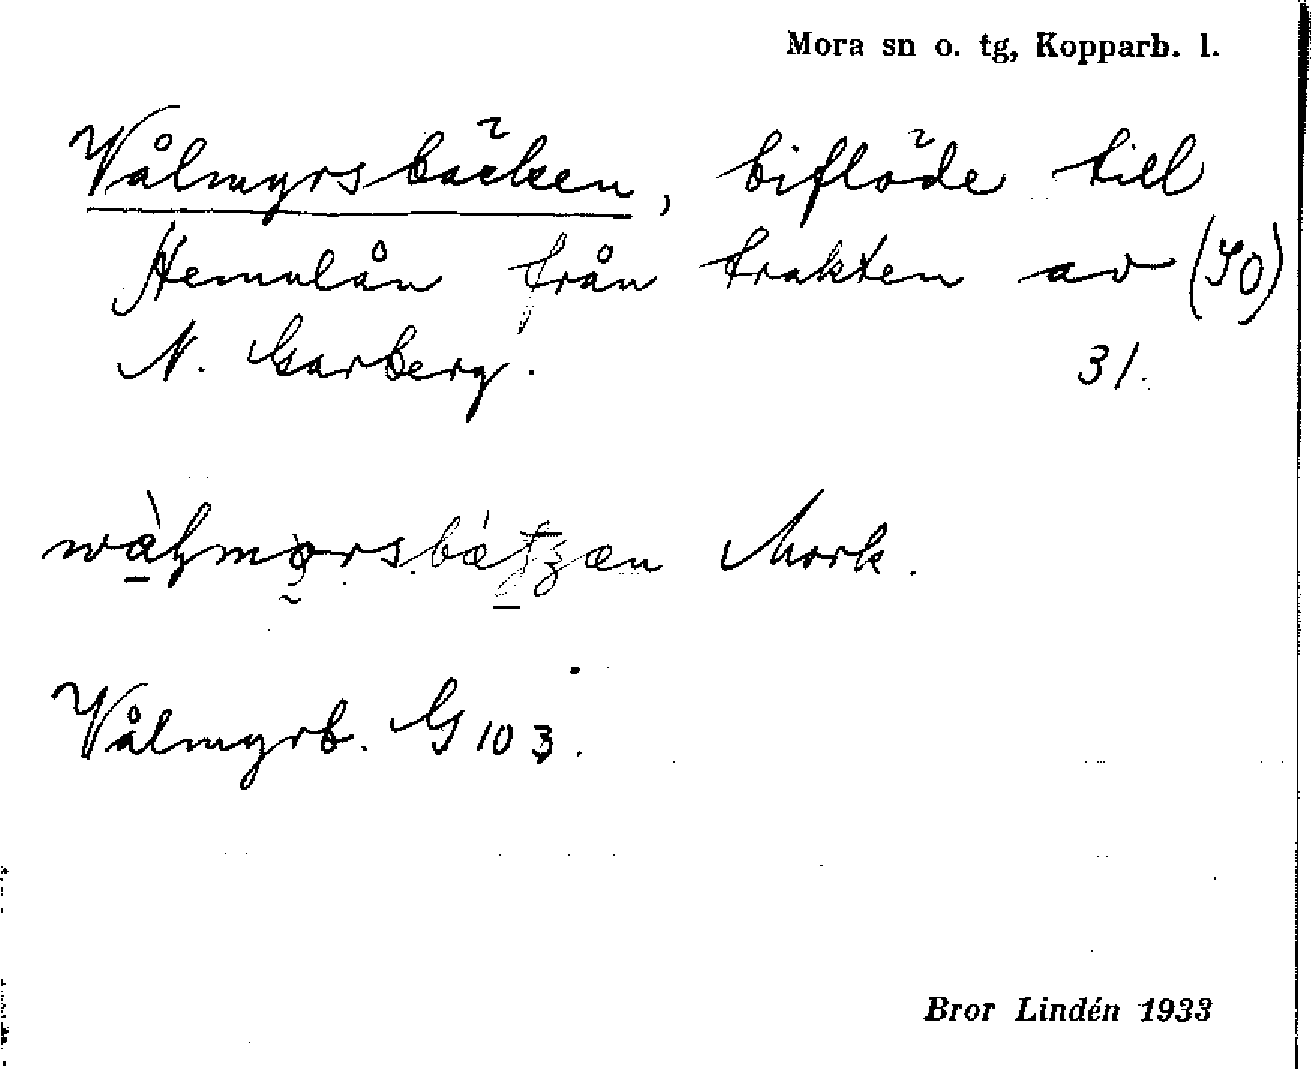 Mora sn o. tg, Kopparb. l.
Vålmyrsbäcken, biflöde till
Hemulån från trakten av (SO)
N. Garberg. 31.
Mork.
Vålmyrb. G 103.
Bror Lindén 1933